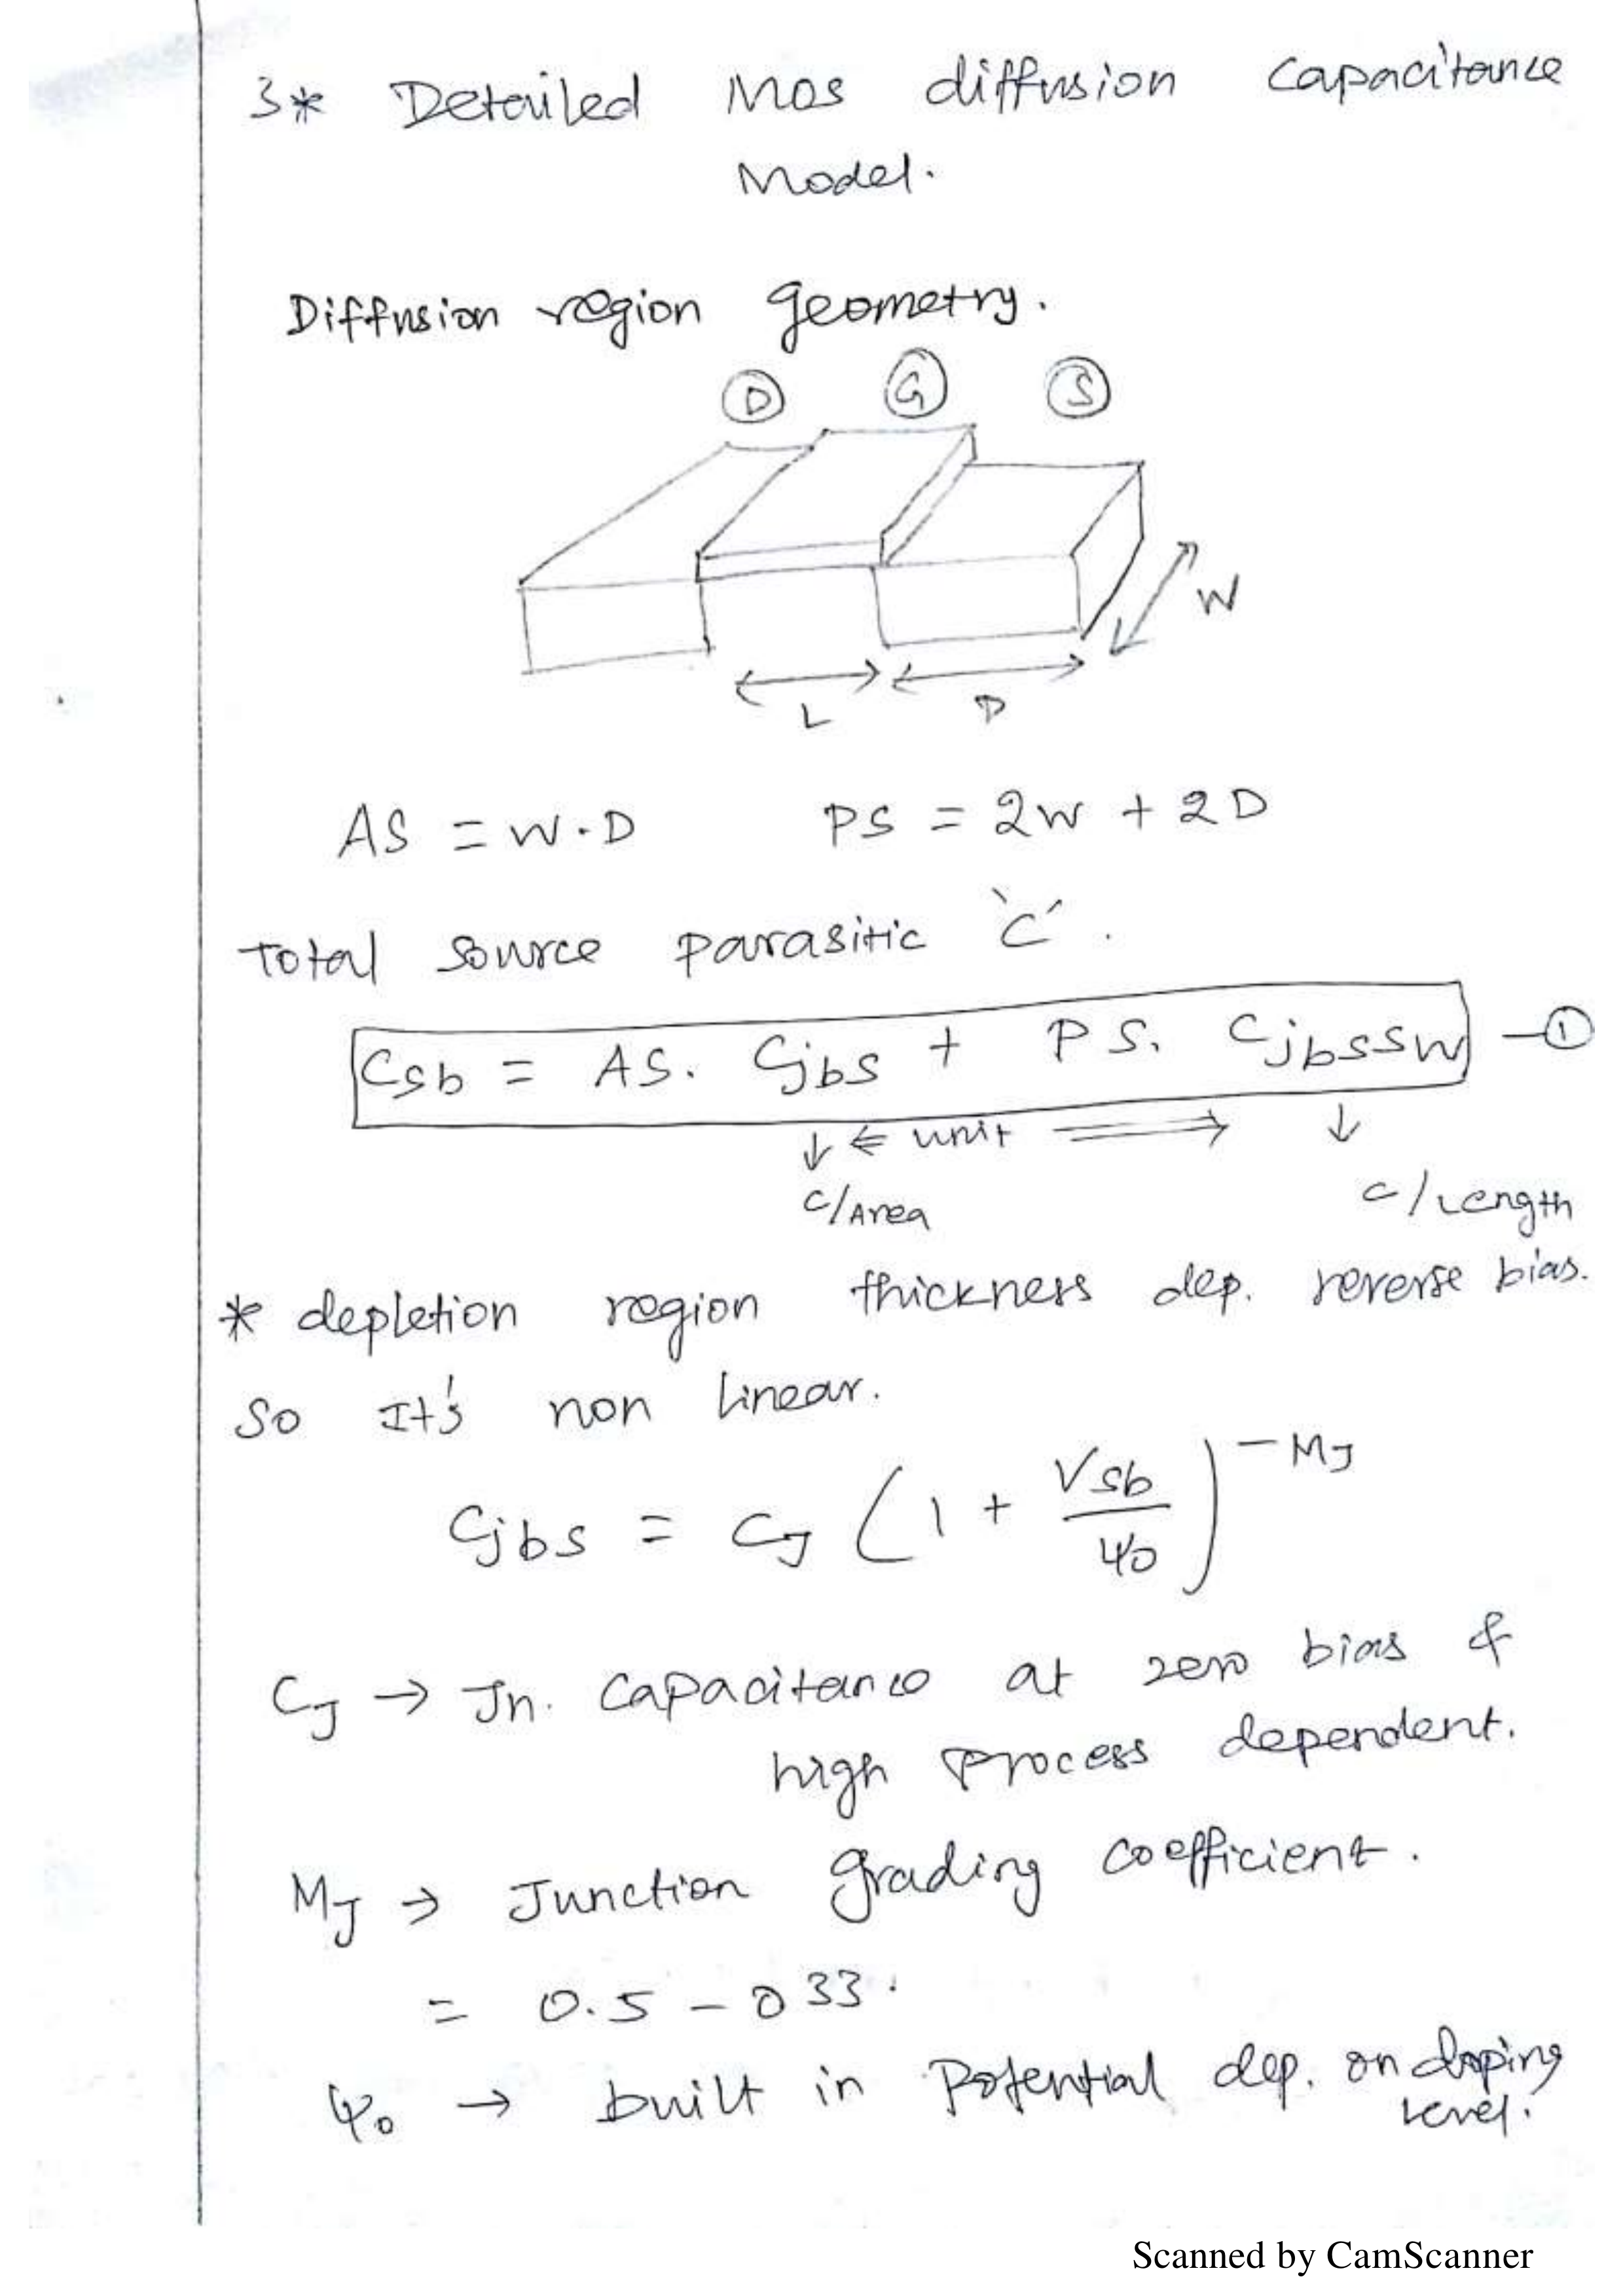 3* Detailed Mos diffusion Capacitance
Model.
Diffusion region geometry.
D G S
W
L D
AS = W·D PS = 2W + 2D
Total source parasitic `C´.
Csb = AS. Cjbs + PS. Cjbssw — 1
↓ ⇐ unit ⟹ ↓
C/Area C/Length
* depletion region thickness dep. reverse bias.
So It's non linear.
Cjbs = CJ (1 + Vsb/ψ0)^-MJ
CJ → Jn. Capacitance at zero bias &
high process dependent.
MJ → Junction grading coefficient.
= 0.5 - 0 33.
ψ0 → built in Potential dep. on doping
level.
Scanned by CamScanner